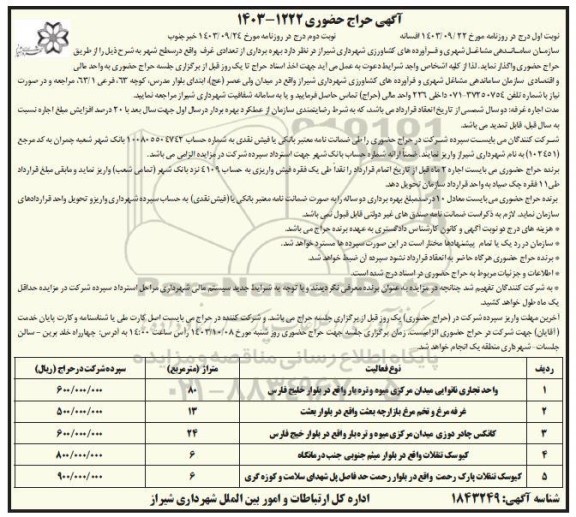 آگهی حراج حضوری ۱۲۲۲-۱۴۰۳
نوبت اول درج در روزنامه مورخ ۱۴۰۳/۰۹/۲۲ افسانه نوبت دوم درج در روزنامه مورخ ۱۴۰۳/۰۹/۲۴ خبر جنوب
سازمان ساماندهی مشاغل شهری و فرآورده های کشاورزی شهرداری شیراز در نظر دارد بهره برداری از تعدادی غرف واقع درسطح شهر به شرح ذیل را از طریق
حراج حضوری واگذار نماید. لذا از کلیه اشخاص واجد شرایط دعوت به عمل می آید جهت اخذ اسناد حراج تا یک روز قبل از برگزاری جلسه حراج حضوری به واحد مالی
و اقتصادی سازمان ساماندهی مشاغل شهری و فرآورده های کشاورزی شهرداری شیراز واقع در میدان ولی عصر (عج)، ابتدای بلوار مدرس، کوچه ۶۳، فرعی ۶۳/۱، مراجعه و در صورت
نیاز با شماره تلفن ۳۷۲۵۰۷۵۴-۰۷۱ داخلی ۲۳۶ واحد مالی (حراج) تماس حاصل فرمایید و یا به سامانه شفافیت شهرداری شیراز مراجعه نمایید.
مدت اجاره غرفه: دو سال شمسی از تاریخ انعقاد قرارداد می باشد، که به شرط رضایتمندی سازمان از عملکرد بهره بردار درسال اول جهت سال بعد با ۲۰ درصد افزایش مبلغ اجاره نسبت
به سال قبل، قابل تمدید می باشد.
شرکت کنندگان می بایست سپرده شرکت در حراج حضوری را طی ضمانت نامه معتبر بانکی یا فیش نقدی به شماره حساب ۱۰۰۸۰۵۵۰۴۷۴۲ بانک شهر شعبه چمران به کد مرجع
(۱۰۲۴۵۱) به نام شهرداری شیراز واریز نمایند. ضمنا ارائه شماره حساب بانک شهر جهت استرداد سپرده شرکت در مزایده الزامی می باشد.
برنده حراج حضوری می بایست اجاره ۲ ماه قبل از تاریخ اتمام قرارداد را نقدا طی یک فقره فیش واریزی به حساب ۴۱۰۹ نزد بانک شهر (تمامی شعب) واریز نماید و مابقی مبلغ قرارداد
طی ۱۱ فقره چک صیاد به واحد قرارداد سازمان تحویل دهد.
برنده حراج حضوری می بایست معادل ۱۰ درصد مبلغ بهره برداری دو ساله را به صورت ضمانت نامه معتبر بانکی یا (فیش نقدی) به حساب سپرده شهرداری واریز و تحویل واحد قراردادهای
سازمان نماید. لازم به ذکر است ضمانت نامه صندوق های غیر دولتی قابل قبول نمی باشد.
* هزینه های درج دو نوبت آگهی و کانون کارشناس دادگستری به عهده برنده حراج می باشد.
* سازمان در رد یک یا تمام پیشنهادها مختار است در این صورت سپرده ها مسترد خواهد شد.
* برنده حراج حضوری هرگاه حاضر به انعقاد قرارداد نشود سپرده آن ضبط خواهد شد.
* اطلاعات و جزئیات مربوط به حراج حضوری در اسناد درج شده است.
* به شرکت کنندگان تفهیم شد چنانچه در مزایده به عنوان برنده معرفی نگردیدند و با توجه به شرایط جدید سیستم مالی شهرداری مراحل استرداد سپرده شرکت در مزایده حداقل
یک ماه طول خواهد کشید.
آخرین مهلت واریز سپرده شرکت در (حراج حضوری) یک روز قبل از برگزاری جلسه حراج می باشد. و شرکت کننده در حراج می بایست اصل کارت ملی یا شناسنامه و کارت پایان خدمت
(آقایان) جهت شرکت در حراج حضوری الزامیست. زمان برگزاری جلسه جهت حراج حضوری روز شنبه مورخ ۱۴۰۳/۱۰/۰۸ راس ساعت ۱۴:۰۰ به آدرس: چهارراه خلد برین - سالن
جلسات - شهرداری منطقه یک انجام خواهد شد.
ردیف نوع فعالیت متراژ (مترمربع) سپرده شرکت در حراج (ریال)
۱ واحد تجاری نانوایی میدان مرکزی میوه و تره بار واقع در بلوار خلیج فارس ۸۰ ۶۰۰/۰۰۰/۰۰۰
۲ غرفه مرغ و تخم مرغ بازارچه بعثت واقع در بلوار بعثت ۱۳ ۵۰۰/۰۰۰/۰۰۰
۳ کانکس چادر دوزی میدان مرکزی میوه و تره بار واقع در بلوار خلیج فارس ۲۴ ۶۰۰/۰۰۰/۰۰۰
۴ کیوسک تنقلات واقع در بلوار میثم جنوبی جنب درمانگاه ۶ ۸۰۰/۰۰۰/۰۰۰
۵ کیوسک تنقلات پارک رحمت واقع در بلوار رحمت حد فاصل پل شهدای سلامت و کوزه گری ۶ ۹۰۰/۰۰۰/۰۰۰
شناسه آگهی: ۱۸۴۳۲۴۹ اداره کل ارتباطات و امور بین الملل شهرداری شیراز